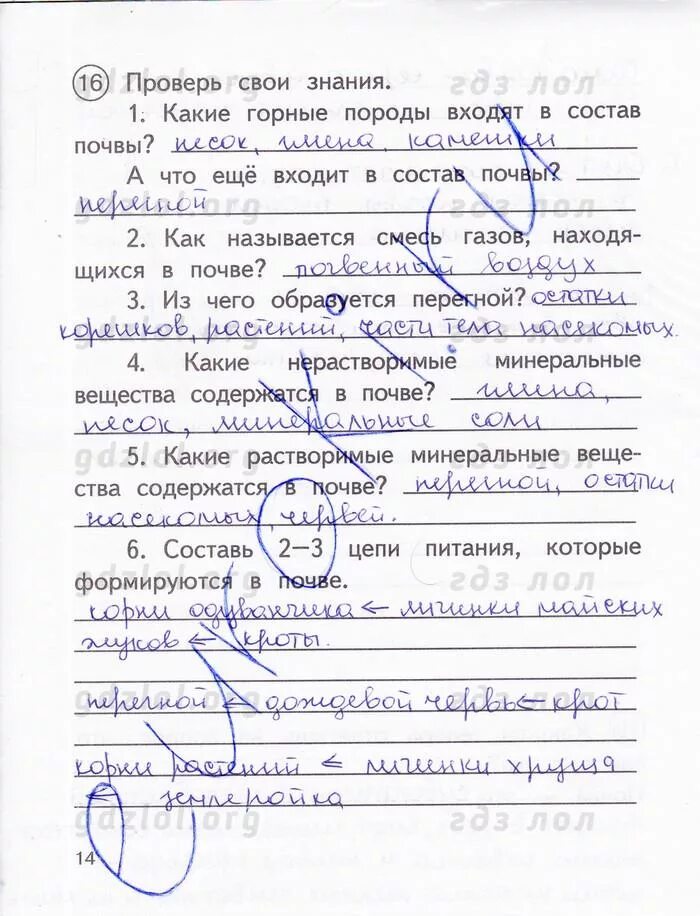 16 Проверь свои знания.
gdzlol.org гдз лол
1. Какие горные породы входят в состав
почвы? песок, глина, камешки
А что ещё входит в состав почвы?
перегной
gdzlol.org гдз лол
2. Как называется смесь газов, находя-
щихся в почве? почвенный воздух
3. Из чего образуется перегной? остатки
корешков, растений, части тела насекомых.
gdzlol.org гдз лол
4. Какие нерастворимые минеральные
вещества содержатся в почве? глина,
песок, минеральные соли
gdzlol.org гдз лол
5. Какие растворимые минеральные веще-
ства содержатся в почве? перегной, остатки
насекомых, червей.
6. Составь 2—3 цепи питания, которые
формируются в почве.
gdzlol.org гдз лол
корни одуванчика ← личинки майских
жуков ← кроты.
перегной ← дождевой червь ← крот
gdzlol.org гдз лол
корни растений ← личинки хруща
← землеройка
gdzlol.org гдз лол
14